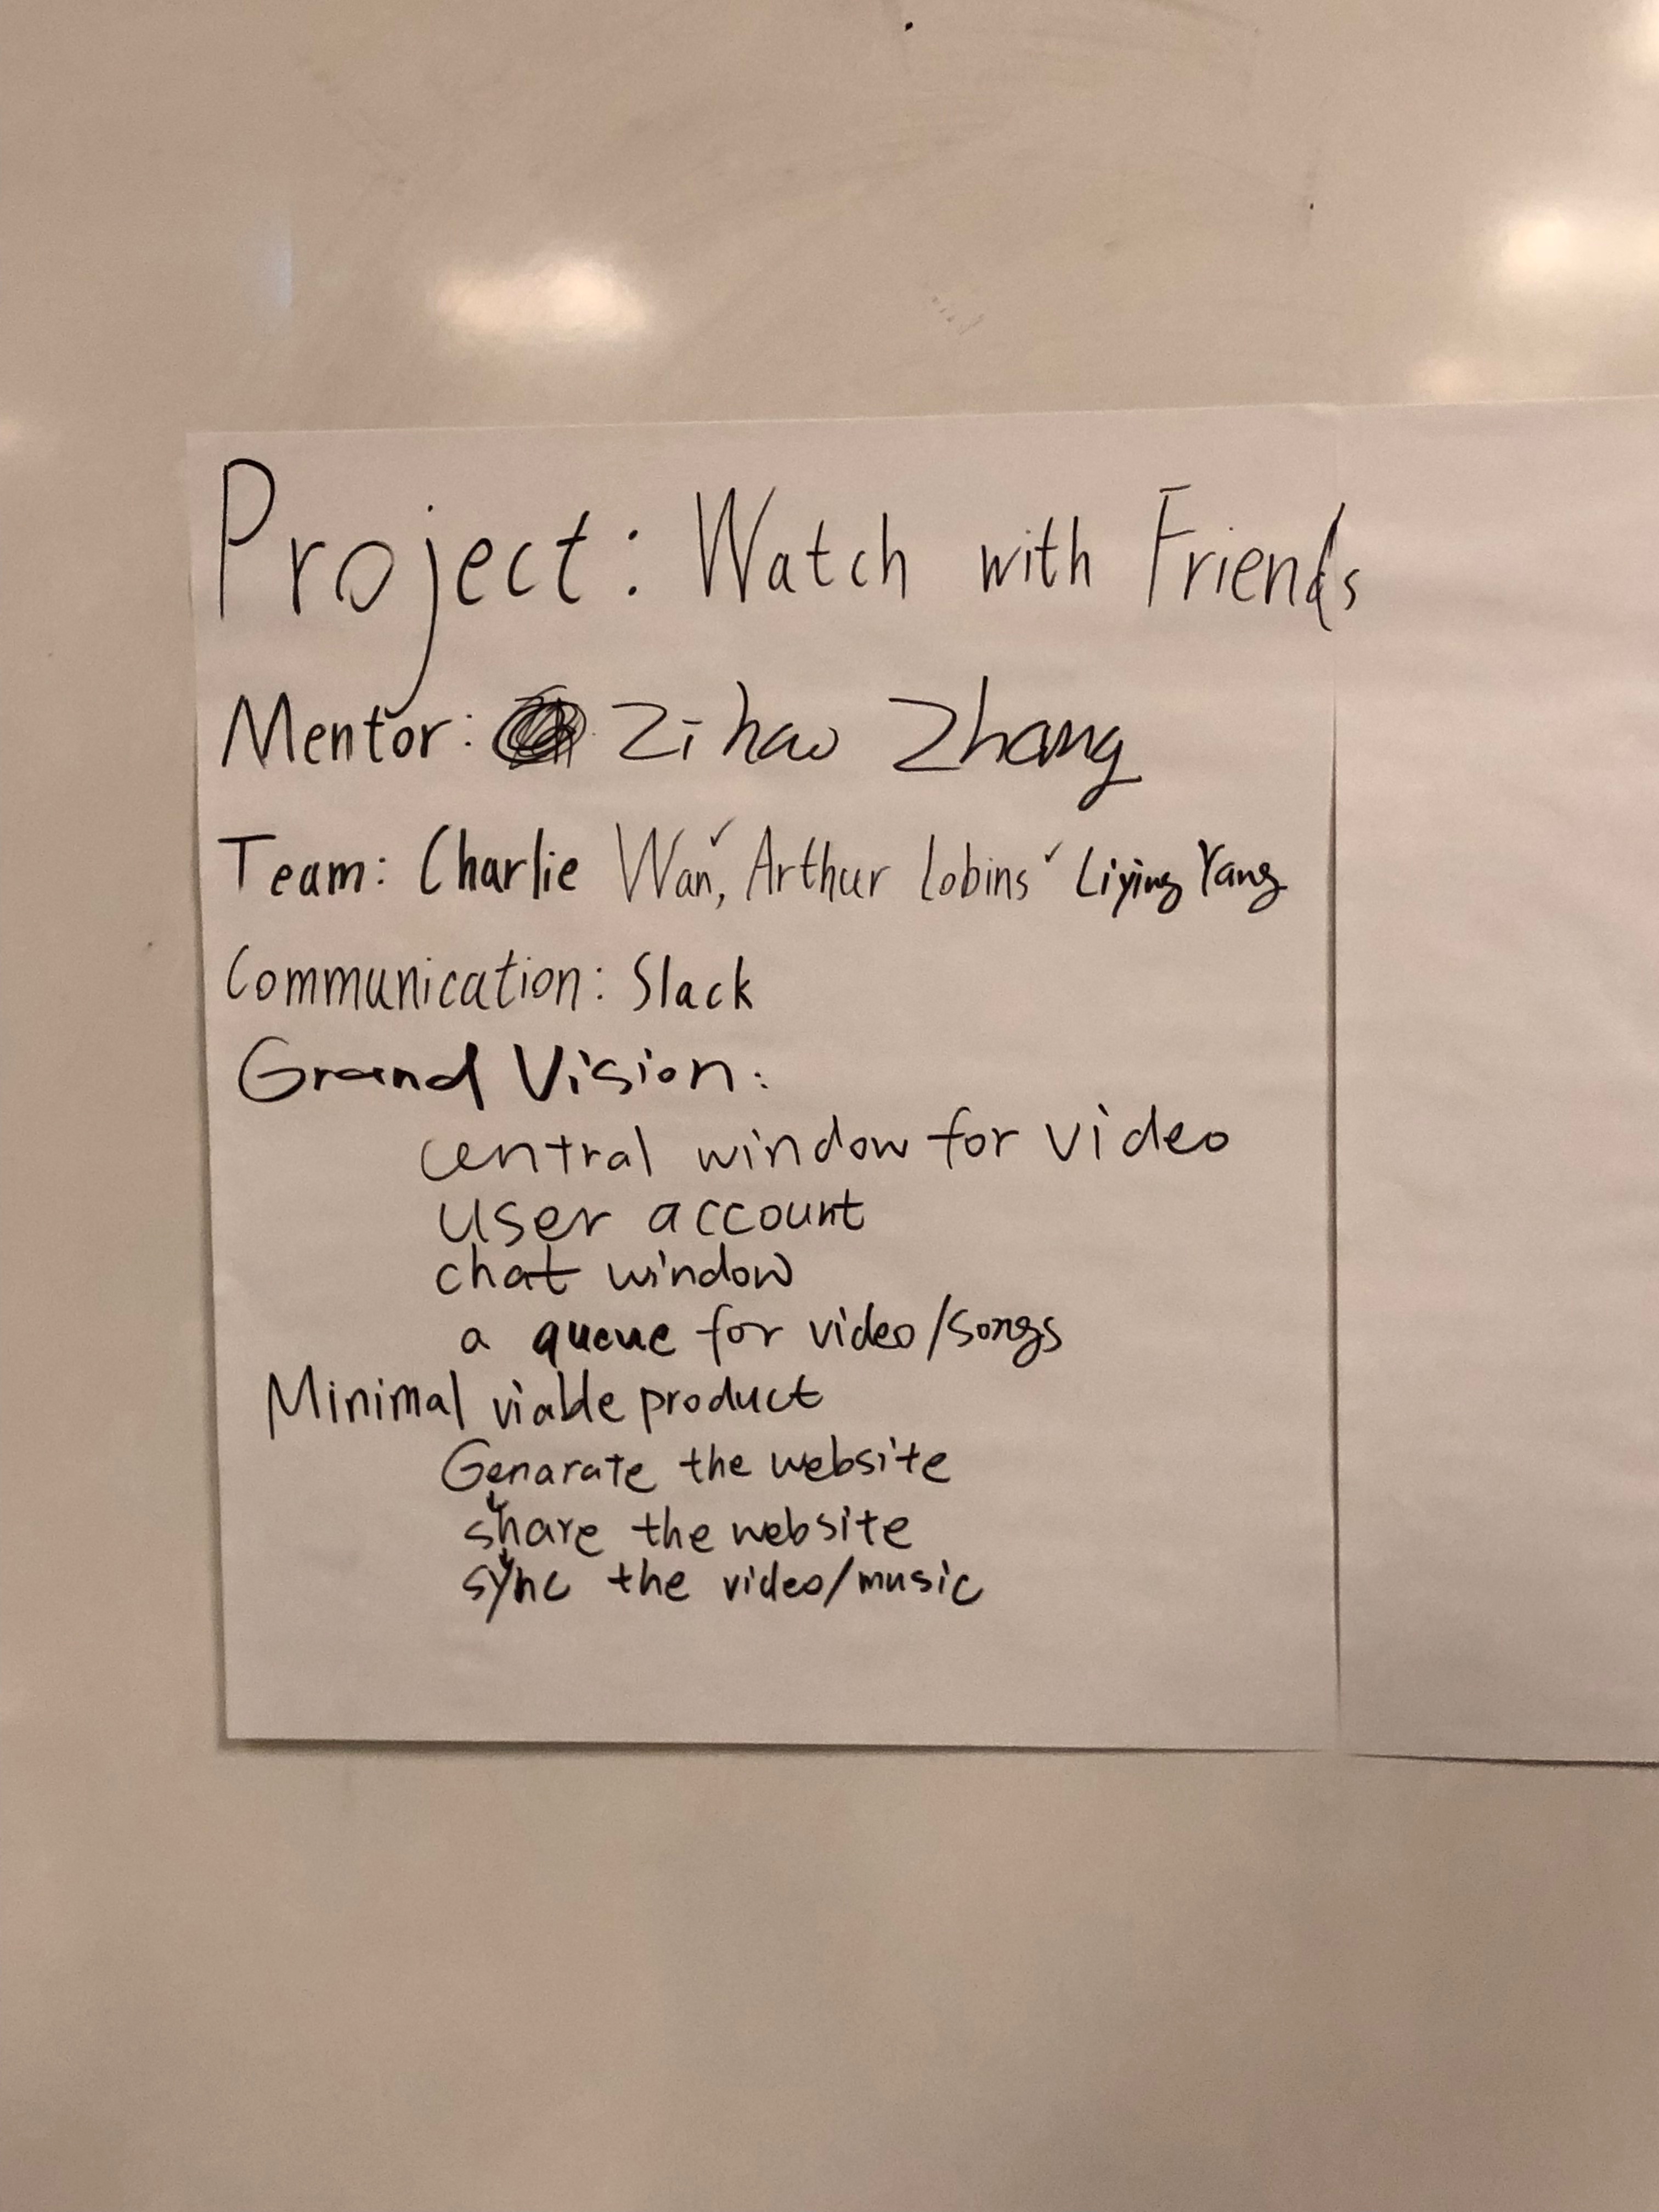 Project: Watch with Friends
Mentor: Zihao Zhang
Team: Charlie Wan, Arthur Lobins Liying Yang
Communication: Slack
Grand Vision:
central window for video
user account
chat window
a queue for video/songs
Minimal viable product
Genarate the website
share the website
sync the video/music